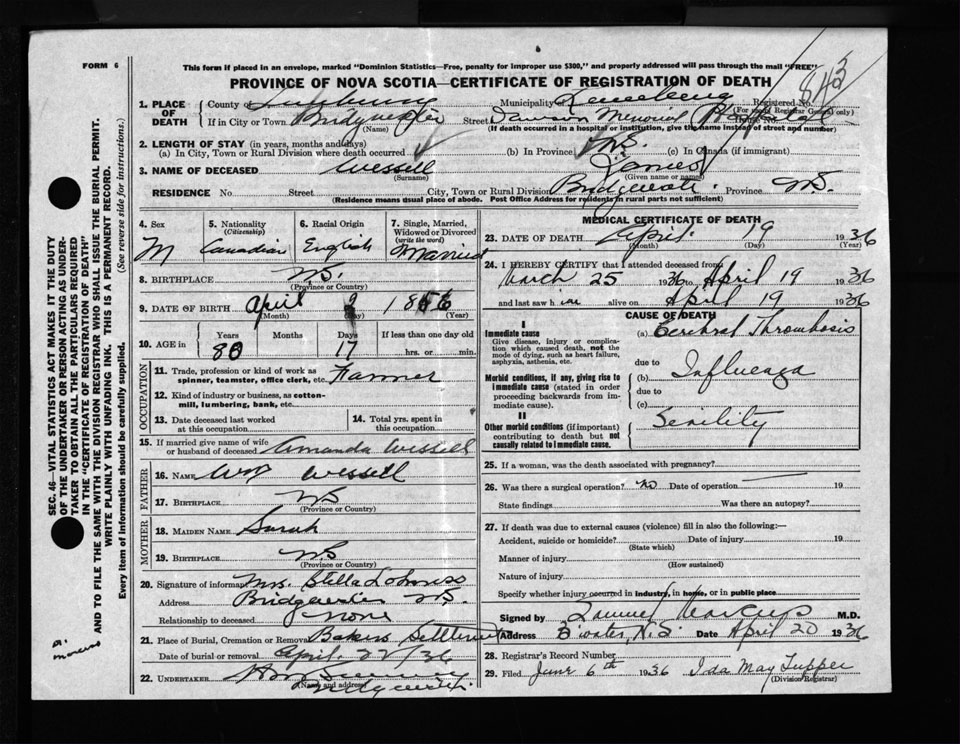 FORM 6
This form if placed in an envelope, marked "Dominion Statistics—Free, penalty for improper use $300," and properly addressed will pass through the mail "FREE"
PROVINCE OF NOVA SCOTIA—CERTIFICATE OF REGISTRATION OF DEATH
843
1. PLACE OF DEATH
County of Lunenburg Municipality of Registered No.
(For use of Registrar General only)
If in City or Town Bridgewater Street Dawson Memorial Hospital House No.
(Name) (If death occurred in a hospital or institution, give the name instead of street and number)
2. LENGTH OF STAY (in years, months and days)
(a) In City, Town or Rural Division where death occurred (b) In Province (c) In Canada (if immigrant)
3. NAME OF DECEASED Wessell James
(Surname) (Given name or names)
RESIDENCE No. Street City, Town or Rural Division Bridgewater Province N.S.
(Residence means usual place of abode. Post Office Address for residents in rural parts not sufficient)
4. Sex
M
5. Nationality
(Citizenship)
Canadian
6. Racial Origin
English
7. Single, Married, Widowed or Divorced
(write the word)
Married
8. BIRTHPLACE N.S.
(Province or Country)
9. DATE OF BIRTH April 1856
(Month) (Day) (Year)
10. AGE in Years Months Days If less than one day old
80 17 hrs. or min.
OCCUPATION
11. Trade, profession or kind of work as spinner, teamster, office clerk, etc. Farmer
12. Kind of industry or business, as cotton-mill, lumbering, bank, etc.
13. Date deceased last worked at this occupation
14. Total yrs. spent in this occupation
15. If married give name of wife or husband of deceased Amanda Wessell
FATHER
16. NAME Wm Wessell
17. BIRTHPLACE NS
(Province or Country)
MOTHER
18. MAIDEN NAME Sarah
19. BIRTHPLACE N.S
(Province or Country)
20. Signature of informant Mrs. Stella
Address Bridgewater N.S.
Relationship to deceased None
21. Place of Burial, Cremation or Removal Bakers Settlement
Date of burial or removal April 22/36
22. UNDERTAKER
(Name and address)
Bridgewater
MEDICAL CERTIFICATE OF DEATH
23. DATE OF DEATH April 19 1936
(Month) (Day) (Year)
24. I HEREBY CERTIFY that I attended deceased from
March 25 1936 to April 19 1936
and last saw him alive on April 19 1936
CAUSE OF DEATH
I
Immediate cause
Give disease, injury or complication which caused death, not the mode of dying, such as heart failure, asphyxia, asthenia, etc.
(a) Cerebral Thrombosis
due to
Morbid conditions, if any, giving rise to immediate cause (stated in order proceeding backwards from immediate cause)
(b) Influenza
due to
(c)
II
Other morbid conditions (if important) contributing to death but not causally related to immediate cause.
Senility
25. If a woman, was the death associated with pregnancy?
26. Was there a surgical operation? no Date of operation 19
State findings Was there an autopsy?
27. If death was due to external causes (violence) fill in also the following:—
Accident, suicide or homicide? Date of injury 19
(State which)
Manner of injury
(How sustained)
Nature of injury
Specify whether injury occurred in industry, in home, or in public place
Signed by M.D.
Address B'water, N.S. Date April 20 1936
28. Registrar's Record Number
29. Filed June 6th 1936 Ida May Tupper
(Division Registrar)
SEC. 46—VITAL STATISTICS ACT MAKES IT THE DUTY
OF THE UNDERTAKER OR PERSON ACTING AS UNDER-
TAKER TO OBTAIN ALL THE PARTICULARS REQUIRED
IN THE "CERTIFICATE OF REGISTRATION OF DEATH"
AND TO FILE THE SAME WITH THE DIVISION REGISTRAR WHO SHALL ISSUE THE BURIAL PERMIT.
WRITE PLAINLY WITH UNFADING INK. THIS IS A PERMANENT RECORD.
Every item of information should be carefully supplied. (See reverse side for instructions.)